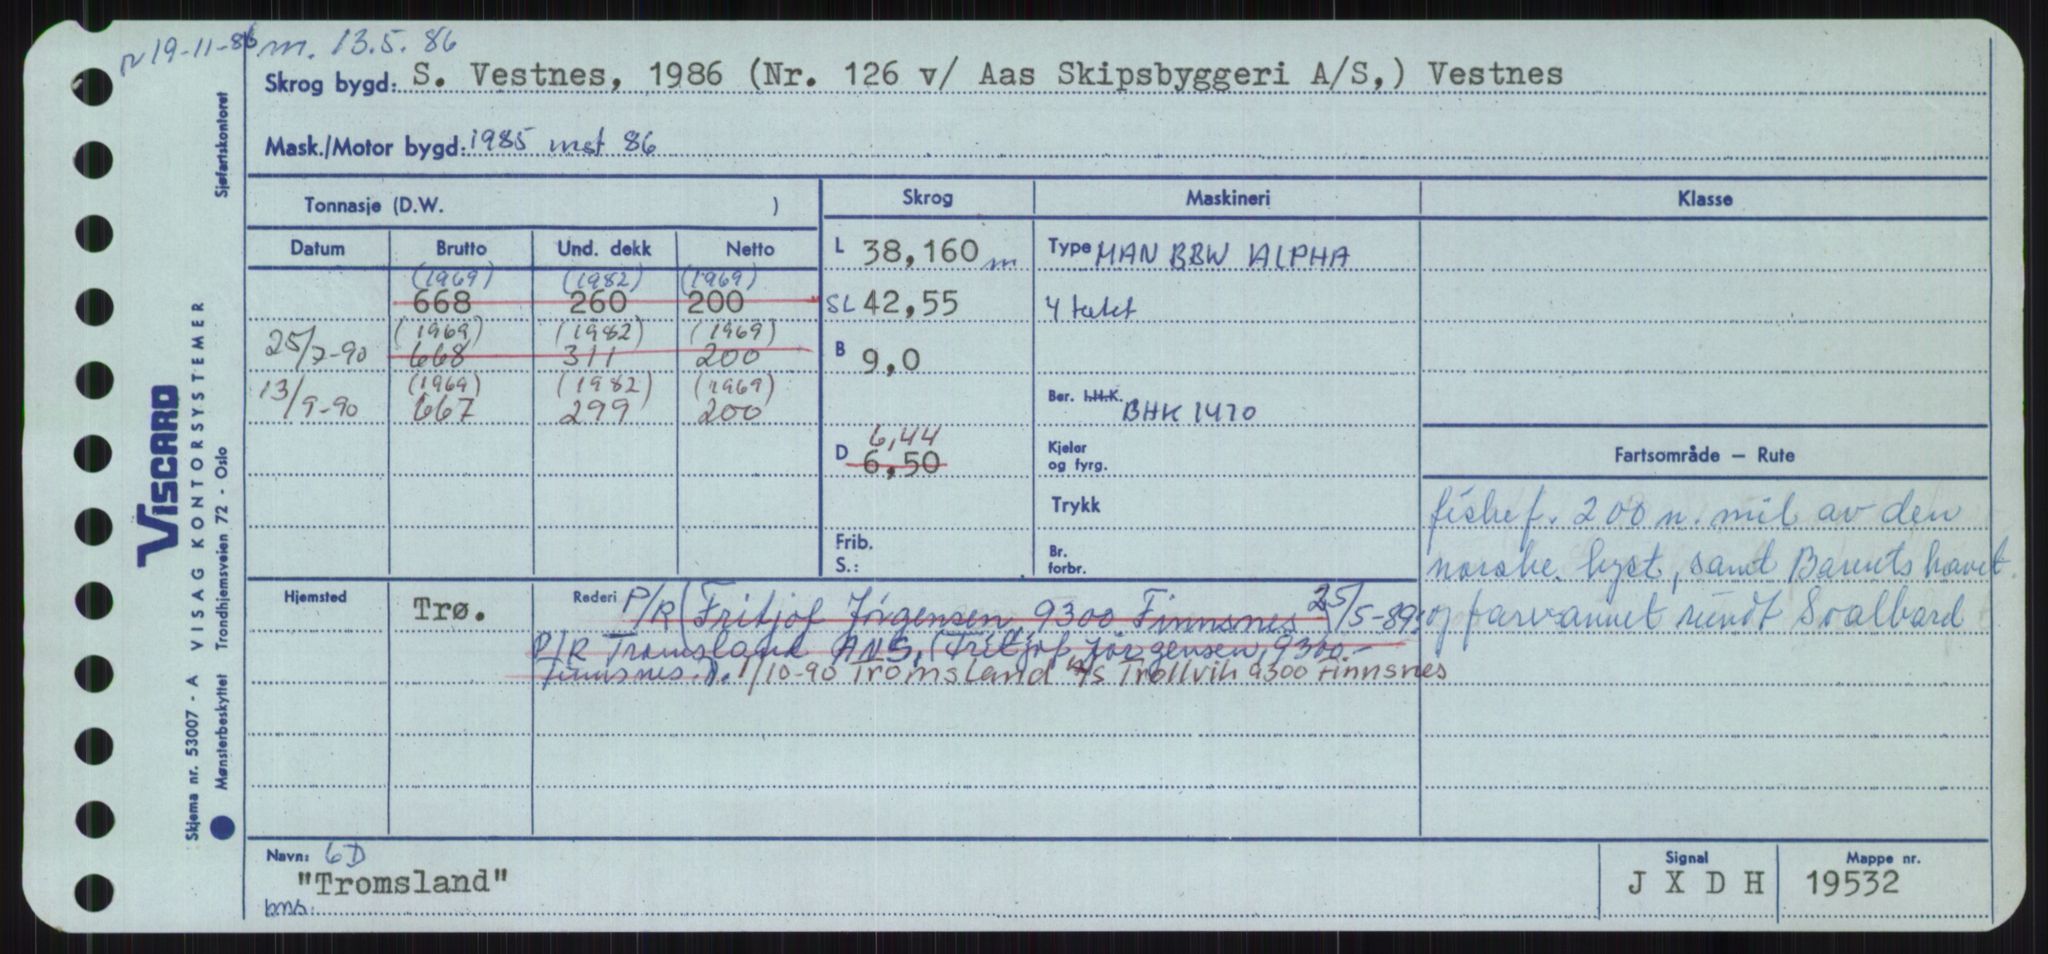 N 19-11-86 m. 13.5.86
Skrog bygd: S. Vestnes, 1986 (Nr. 126 v/ Aas Skipsbyggeri A/S,) Vestnes
Mask./Motor bygd: 1985 mst 86
Tonnasje (D.W. )
Skrog Maskineri Klasse
Datum Brutto Und. dekk Netto
(1969) (1982) (1969)
668 260 200
25/7-90 (1969) (1982) (1969)
668 311 200
13/9-90 (1969) (1982) (1969)
667 299 200
L 38,160 m
SL 42,55
B 9,0
6,44
D 6,50
Frib.
S.:
Type MAN B&W ALPHA
4 takt
Ber. I.H.K. BHK 1470
Kjeler
og fyrg.
Trykk
Br.
forbr.
Fartsområde — Rute
fiskef. 200 n. mil av den
norske kyst, samt Barentshavet
og farvannet rundt Svalbard
Hjemsted Trø.
Rederi P/R (Fritjof Jörgensen 9300 Finnsnes 25/5-89:
P/R Tromsland ANS, (Fritjof Jörgensen, 9300.-
Finnsnes.). 1/10-90 Tromsland A/S Trollvik 9300 Finnsnes
Navn: 6D
"Tromsland"
bns.
Signal
J X D H
Mappe nr.
19532
VISCARD
VISAG KONTORSYSTEMER
Skjema nr. 53007 - A
Mønsterbeskyttet Trondhjemsveien 72 - Oslo
Sjøfartskontoret